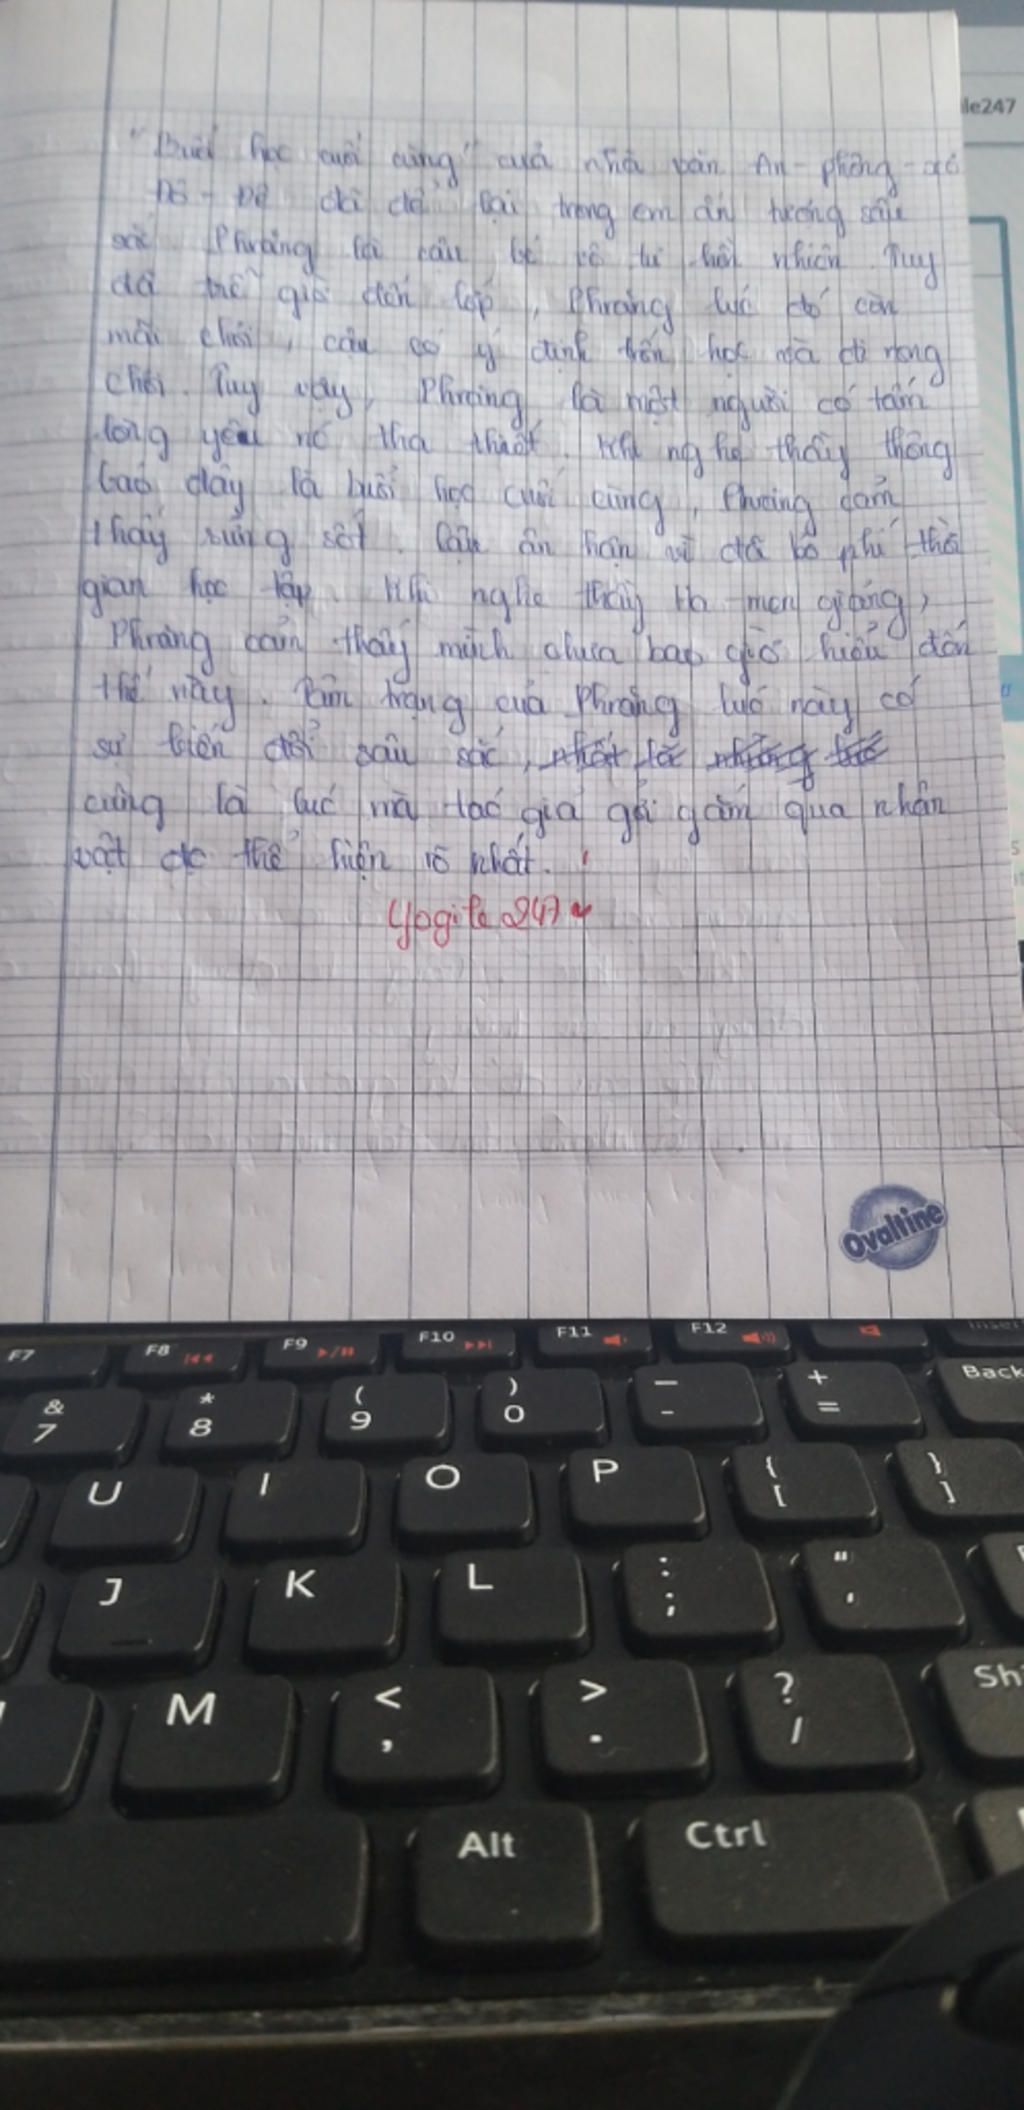 "Buổi học cuối cùng" của nhà văn An-phông-xơ
Đô-đê đã để lại trong em ấn tượng sâu
sắc. Phrăng là cậu bé vô tư hồn nhiên. Tuy
đã trễ giờ đến lớp, Phrăng lúc đó còn
mãi chơi, cậu có ý định trốn học mà đi rong
chơi. Tuy vậy, Phrăng là một người có tấm
lòng yêu nó tha thiết. Khi nghe thầy thông
báo đây là buổi học cuối cùng, Phrăng cảm
thấy sửng sốt. Cậu ân hận vì đã bỏ phí thời
gian học tập. Khi nghe thầy Ha-men giảng,
Phrăng cảm thấy mình chưa bao giờ hiểu đến
thế này. Tâm trạng của Phrăng lúc này có
sự biến đổi sâu sắc,
cũng là lúc mà tác giả gởi gắm qua nhân
vật đc thể hiện rõ nhất.
Yogite 247
le247
Ovaltine
F7 F8 F9 F10 F11 F12
& 7 * 8 ( 9 ) 0 _ - + = Back
U I O P { [ } ]
J K L : ; " '
M < , > . ? / Sh
Alt Ctrl